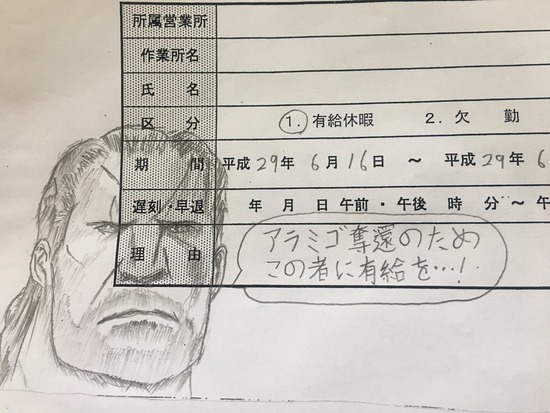 所属営業所
作業所名
氏名
区分 1. 有給休暇 2. 欠勤
期間 平成29年 6月16日 ～ 平成29年 6
遅刻・早退 年 月 日 午前・午後 時 分～午
理由 アラミゴ奪還のため
この者に有給を…!